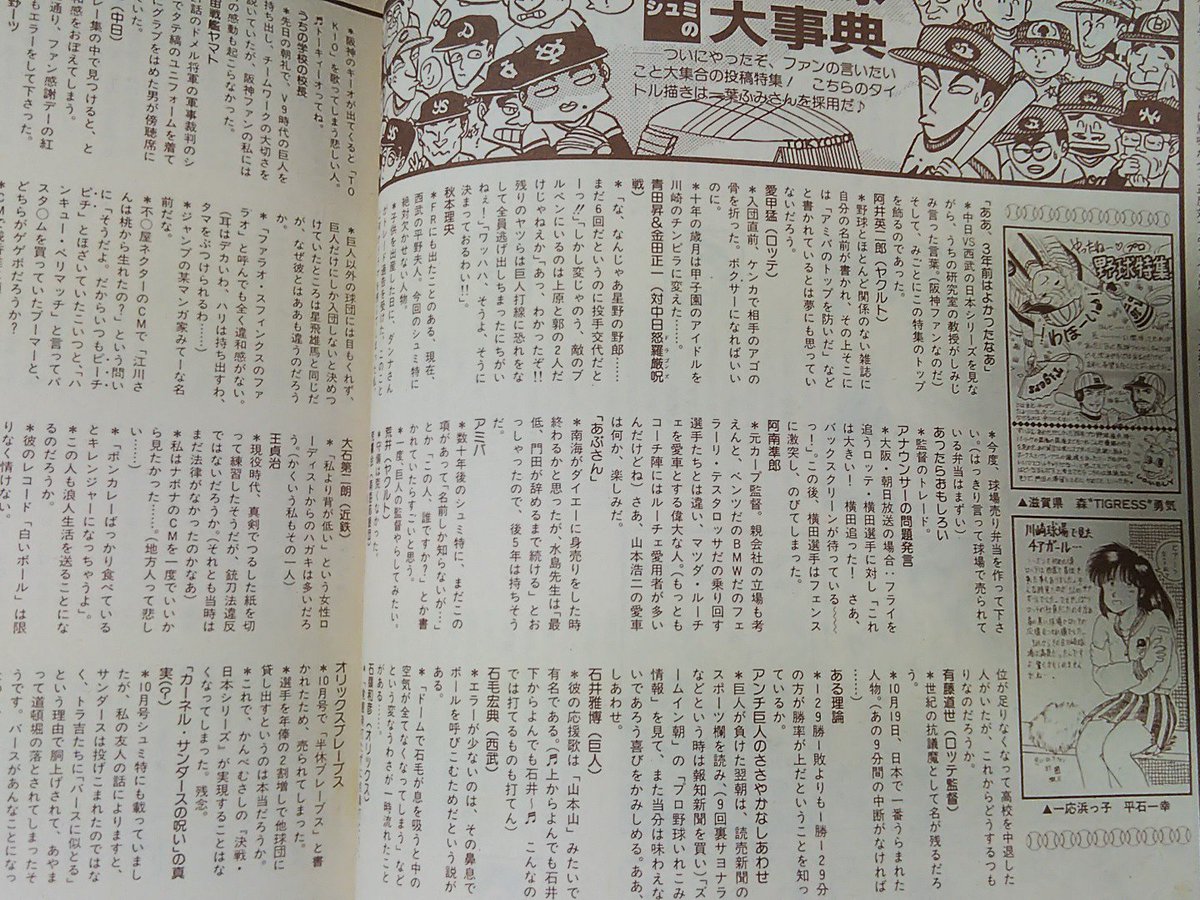 シュミの
大事典
ついにやったぞ、ファンの言いたい
こと大集合の投稿特集! こちらのタイ
トル描きは一葉ふみさんを採用だ♪
TOKYO
「ああ、3年前はよかったなあ」
*中日VS西武の日本シリーズを見な
がら、うちの研究室の教授がしみじ
み言った言葉。阪神ファンなのだ。
そして、みごとにこの特集のトップ
を飾るのであった。
阿井英二郎(ヤクルト)
*野球とほとんど関係のない雑誌に
自分の名前が書かれ、その上そこに
は「アミバのトップを防いだ」など
と書かれているとは夢にも思ってい
ないだろう。
愛甲猛(ロッテ)
*入団直前、ケンカで相手のアゴの
骨を折った。ボクサーになればいい
のに。
*十年の歳月は甲子園のアイドルを
川崎のチンピラに変えた……。
青田昇&金田正一(対中日怒羅厳呪
戦)
*「な、なんじゃあ星野の野郎……
まだ6回だというのに投手交代だと
ーっ!!」「しかし変じゃのう、敵のブ
ルペンにいるのは上原と郭の2人だ
けじゃねえか」「あっ、わかったぞ!!
残りのヤツらは巨人打線に恐れをな
して全員逃げ出しちまったにちがい
ねぇ!」「ワッハハ、そうよ、そうに
決まっておるわい!!」。
秋本理央
*FRにも出たことのある、現在、
西武の平野夫人。今回のシュミ特に
絶対欠かせない人物。
*子供を出産した日に、ダンナさん
*今度、球場売り弁当を作って下さ
い。(はっきり言って球場で売られて
いる弁当はまずい)
あったらおもしろい
*監督のトレード。
アナウンサーの問題発言
*大阪・朝日放送の場合:フライを
追うロッテ・横田選手に対し「これ
は大きい! 横田追った! さあ、
バックスクリーンが待っている〜〜
っ!」この後、横田選手はフェンス
に激突し、のびてしまった。
阿南準郎
*元カープ監督。親会社の立場も考
えんと、ベンツだのBMWだのフェ
ラーリ・テスタロッサだの乗り回す
選手たちとは違い、マツダ・ルーチ
ェを愛車とする偉大な人。(もっとも
コーチ陣にはルーチェ愛用者が多い
んだけどね)さあ、山本浩二の愛車
は何か、楽しみだ。
「あぶさん」
*南海がダイエーに身売りをした時
終わるかと思ったが、水島先生は「最
低、門田が辞めるまで続ける」とお
っしゃったので、後5年は持ちそう
だ。
アミバ
*数十年後のシュミ特に、まだこの
項があって「名前しか知らないが…」
とか「この人、誰ですか?」とか書
かれていたらすごいと思う。
*一度、巨人の監督やらしてみたい。
荒井(ヤクルト)
位が足りなくなって高校を中退した
人がいたが、これからどうするつも
りなのだろうか。
有藤道世(ロッテ監督)
*世紀の抗議魔として名が残るだろ
う。
*10月19日、日本で一番うらまれた
人物。(あの9分間の中断がなければ
……)
ある理論
*129勝1敗よりも1勝129分
の方が勝率が上だということを知っ
ているか。
アンチ巨人のささやかなしあわせ
*巨人が負けた翌朝は、読売新聞の
スポーツ欄を読み、(9回裏サヨナラ
などという時は報知新聞を買い)「ズ
ームイン朝」の「プロ野球いれこみ
情報」を見て、また当分は味わえな
いであろう喜びをかみしめる。ああ、
しあわせ。
石井雅博(巨人)
*彼の応援歌は「山本山」みたいで
有名である。(♬上からよんでも石井
下からよんでも石井〜♬ こんなの
では打てるものも打てん)
石毛宏典(西武)
*エラーが少ないのは、その鼻息で
ボールを呼びこむためだという説が
ある。
*「ドームで石毛が息を吸うと中の
空気が全てなくなってしまう」など
という変なうわさが一時流れたこと
がある……。
石嶺和彦(オリックス)
やったね プロ
野球特集
わほーい
Tigers
▲滋賀県 森"TIGRESS"勇気
川崎球場で見た
4Tガール…
▲一応浜っ子 平石一幸
*阪神のキーオが出てくると「TO
KIO」を歌ってしまう悲しい人。
♬トーキィーオってね。
うちの学校の校長
*先日の朝礼で、V9時代の巨人を
持ち出し、チームワークの大切さを
説いていたが、阪神ファンの私には
何の感動も起こらなかった。
宇宙戦艦ヤマト
話のドメル将軍の軍事裁判のシ
でタテ縞のユニフォームを着て
グラブをはめた男が傍聴席に
いた。
(中日)
レー集の中で見つけると、と
和感をおぼえてしまう。
通り、ファン感謝デーの紅
もエラーをして下さった。
*巨人以外の球団には目もくれず、
巨人だけにしか入団しないと決めつ
けていたところは星飛雄馬と同じだ
が、なぜ彼とはああも違うのだろう
か。
*「ファラオ・スフィンクスのファ
ラオ」と呼んでも全く違和感がない。
(耳はデカいわ、ハリは持ち出すわ、
タマをぶつけられるわ……)
*ジャンプの某マンガ家みてーな名
前だな。
*不〇屋ネクターのCMで「江川さ
んは桃から生れたの?」という問い
に「そうだよ。だからいつもピーチ
ピチ」とほざいていたこいつと、「ハ
ンキュー・ベリマッチ」と言ってバ
スタ〇ムを買っていたブーマーと、
どちらがゲボボだろうか?
大石第二朗(近鉄)
*「私より背が低い」という女性ロ
ーディストからのハガキは多いだろ
う。(かくいう私もその一人)
王貞治
*現役時代、真剣でつるした紙を切
って練習したそうだが、銃刀法違反
ではないだろうか。(それとも当時は
まだ法律がなかったのかなあ)
*私はナボナのCMを一度でいいか
ら見たかった……。(地方人って悲し
い……)
*「ボンカレーばっかり食べている
とキレンジャーになっちゃうよ」。
*この人も浪人生活を送ることにな
るのだろうか。
*彼のレコード「白いボール」は限
りなく情けない。
オリックスブレーブス
*10月号で「半休ブレーブス」と書
かれたため、売られてしまった。
*選手を年俸の2割増しで他球団に
貸し出すというのは本当だろうか。
*これで、かんべむさしの『決戦・
日本シリーズ』が実現することはな
くなってしまった。残念。
「カーネル・サンダースの呪い」の真
実(?)
*10月号シュミ特にも載っていまし
たが、私の友人の話によりますと、
サンダースは投げこまれたのではな
く、トラ吉たちに「バースに似とる」
という理由で胴上げされて、あやま
って道頓堀の落とされてしまったそ
うです。バースがあんなことになっ